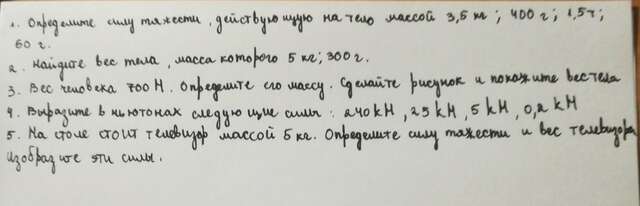 1. Определите силу тяжести, действующую на тело массой 3,5 кг; 400 г; 1,5 т;
60 г.
2. Найдите вес тела, масса которого 5 кг; 300 г.
3. Вес человека 700 Н. Определите его массу. Сделайте рисунок и покажите вес тела
4. Выразите в ньютонах следующие силы: 240 кН, 25 кН, 5 кН, 0,2 кН
5. На столе стоит телевизор массой 5 кг. Определите силу тяжести и вес телевизора
Изобразите эти силы.